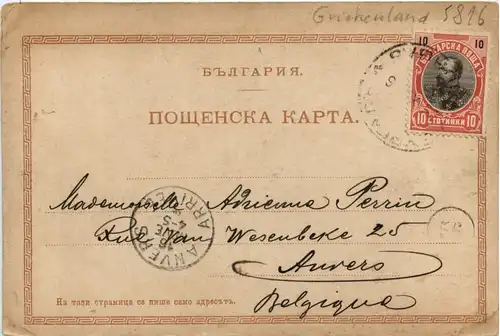 Griechenland 5816
10 10
БЪЛГАРСКА ПОЩА
10 СТОТИНКИ 10
БЪЛГАРИЯ.
ПОЩЕНСКА КАРТА.
Mademoiselle Adrienne Perrin
Rue Van Wesenbeke 25
Anvers
Belgique
ANVERS ARRIVÉE
На тази страница се пише само адресътъ.